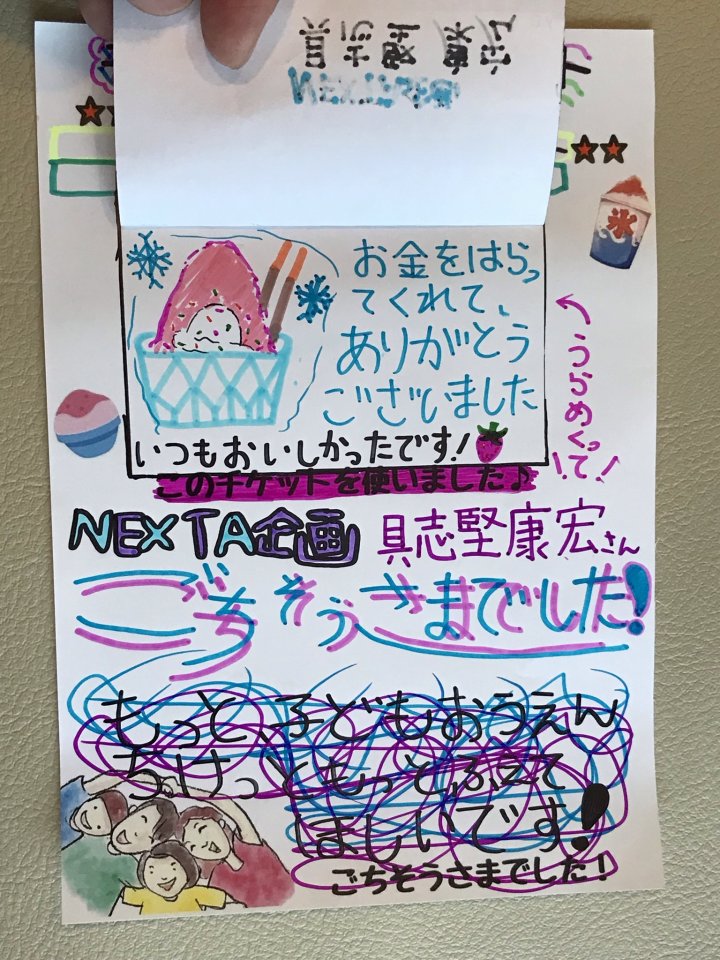 氷
お金をはらっ
てくれて、
ありがとう
ございました
いつもおいしかったです!
←うらめくって!!
このチケットを使いました♪
NEXTA企画 具志堅康宏さん
ごちそうさまでした!
もっと、子どもおうえん
ちけっともっとふえて
ほしいです!
ごちそうさまでした!